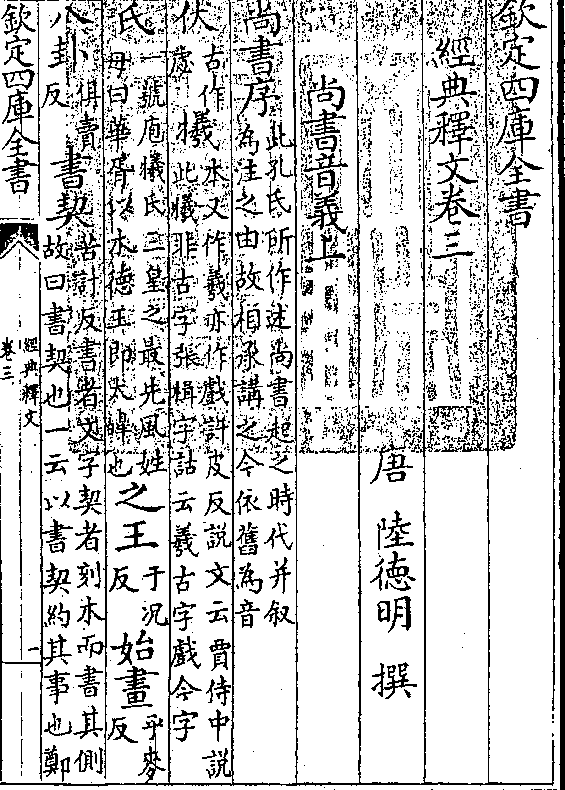 欽定四庫全書
經典釋文卷三
唐 陸德明 撰
尚書音義上
尚書序此孔氏所作述尚書起之時代并叙為注之由故相承講之今依舊為音
伏古作虙犧本又作羲亦作戲許皮反説文云賈侍中説此犧非古字張楫字詁云羲古字戲今字
氏一號庖犧氏三皇之最先風姓母曰華胥以木德王即太皥也之王于況反始畫乎麥反
八卦俱賣反書契苦計反書者文字契者刻木而書其側故曰書契也一云以書契約其事也鄭
欽定四庫全書
經典釋文
卷三
一